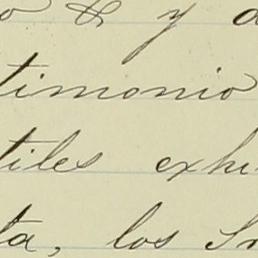 o & y a
timonio
tiles exhi
ta, los Sr